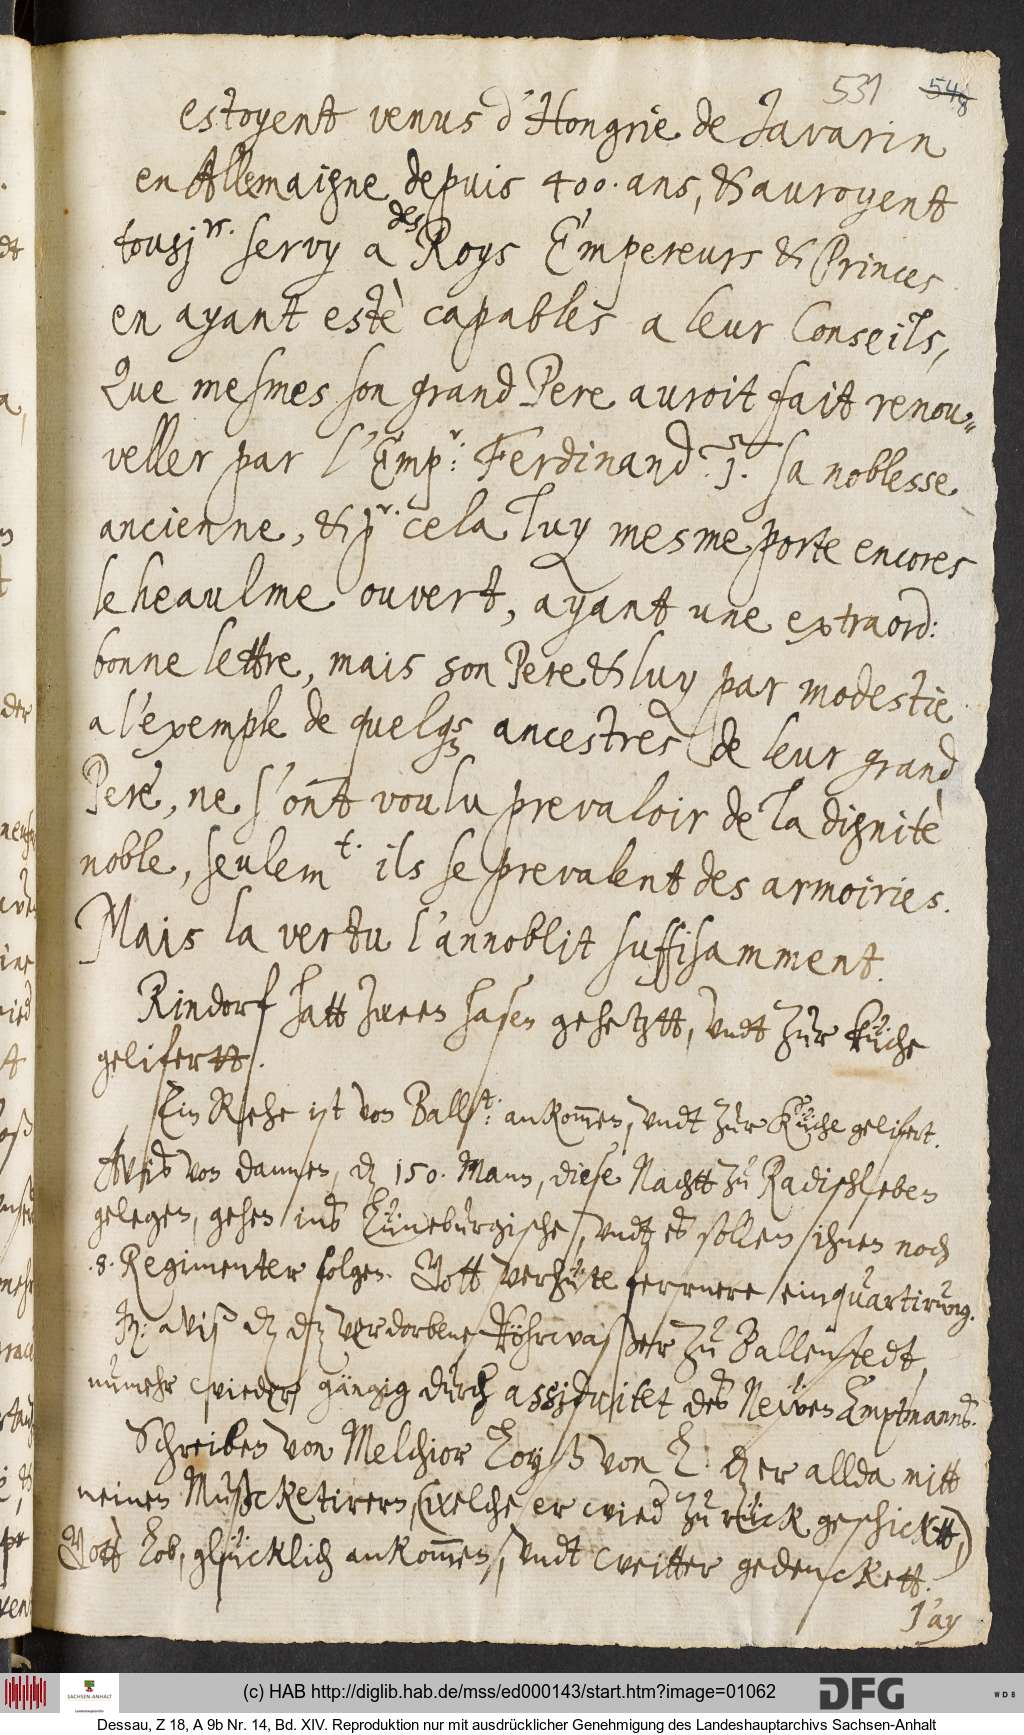 531 548
estoyent venus d'Hongrie de Javarin
en Allemaigne depuis 400. ans, & auroyent
tousj.rs servy a des Roys Empereurs & Princes
en ayant estè capables a leur Conseils,
Que mesmes son grand Pere auroit fait renou-
veller par l'Emp.r: Ferdinand 1. sa noblesse
ancienne, & p.r cela luy mesme porte encores
le heaulme ouvert, ayant une extraord:
bonne lettre, mais son Pere & luy par modestie
a l'exemple de quelqs ancestres de leur grand
Pere, ne s'ont voulu prevaloir de la dignitè
noble, seulem.t ils se prevalent des armoiries.
Mais la vertu l'annoblit suffisamment.
Rindorf hatt zween hasen gehetzett, undt zur küche
gelifertt.
Ein Rehe ist von Ballst: ankommen, undt zur Küche gelifert.
Avis von dannen, dz 150. Mann, diese Nachtt zu Radischleben
gelegen, gehen ins Lüneburgische, undt es sollen ihnen noch
8. Regimenter folgen. Gott verhüte fernere einquartirung.
It: avis dz dz verdorbene Röhrwaßer zu Ballenstedt,
numehr wieder gängig durch assiduitet des Neẅen Amptmanns.
Schreiben von Melchior Loyß von L: der er allda mitt
meinen Mußcketirern, (welche er wied zurück geschicktt,)
Gott lob, glücklich ankommen, undt weitter gedenckett.
J'ay
(c) HAB http://diglib.hab.de/mss/ed000143/start.htm?image=01062
SACHSEN-ANHALT
DFG
WDB
Dessau, Z 18, A 9b Nr. 14, Bd. XIV. Reproduktion nur mit ausdrücklicher Genehmigung des Landeshauptarchivs Sachsen-Anhalt